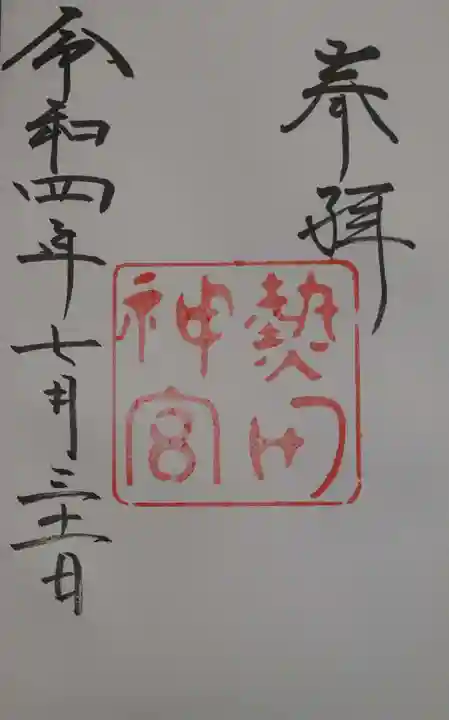 奉拝
熱田
神宮
令和四年七月三十一日